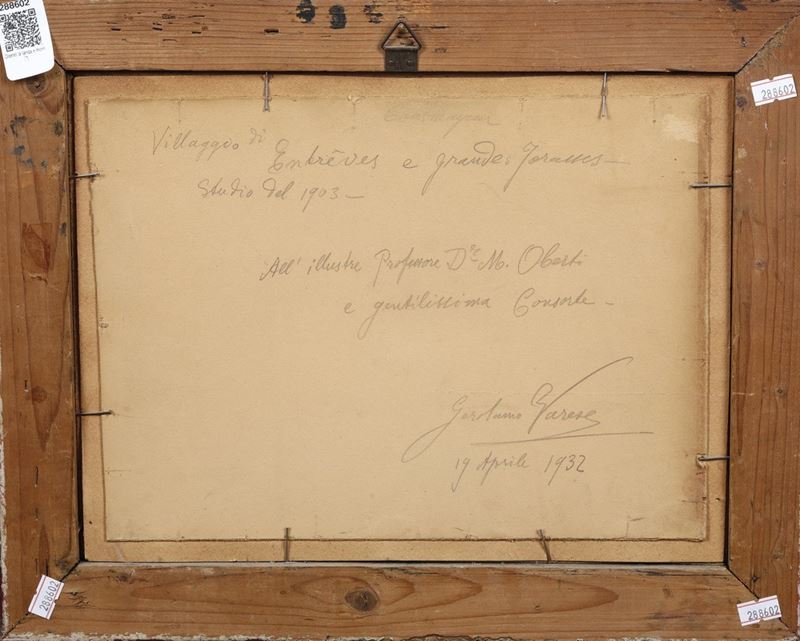 288602
288602
Courmayeur
Villaggio di Entrêves e grandes Jorasses —
Studio del 1903 —
All' illustre Professore Dr M. Oberti
e gentilissima Consorte —
Gerolamo Varese
19 Aprile 1932
288602
288602